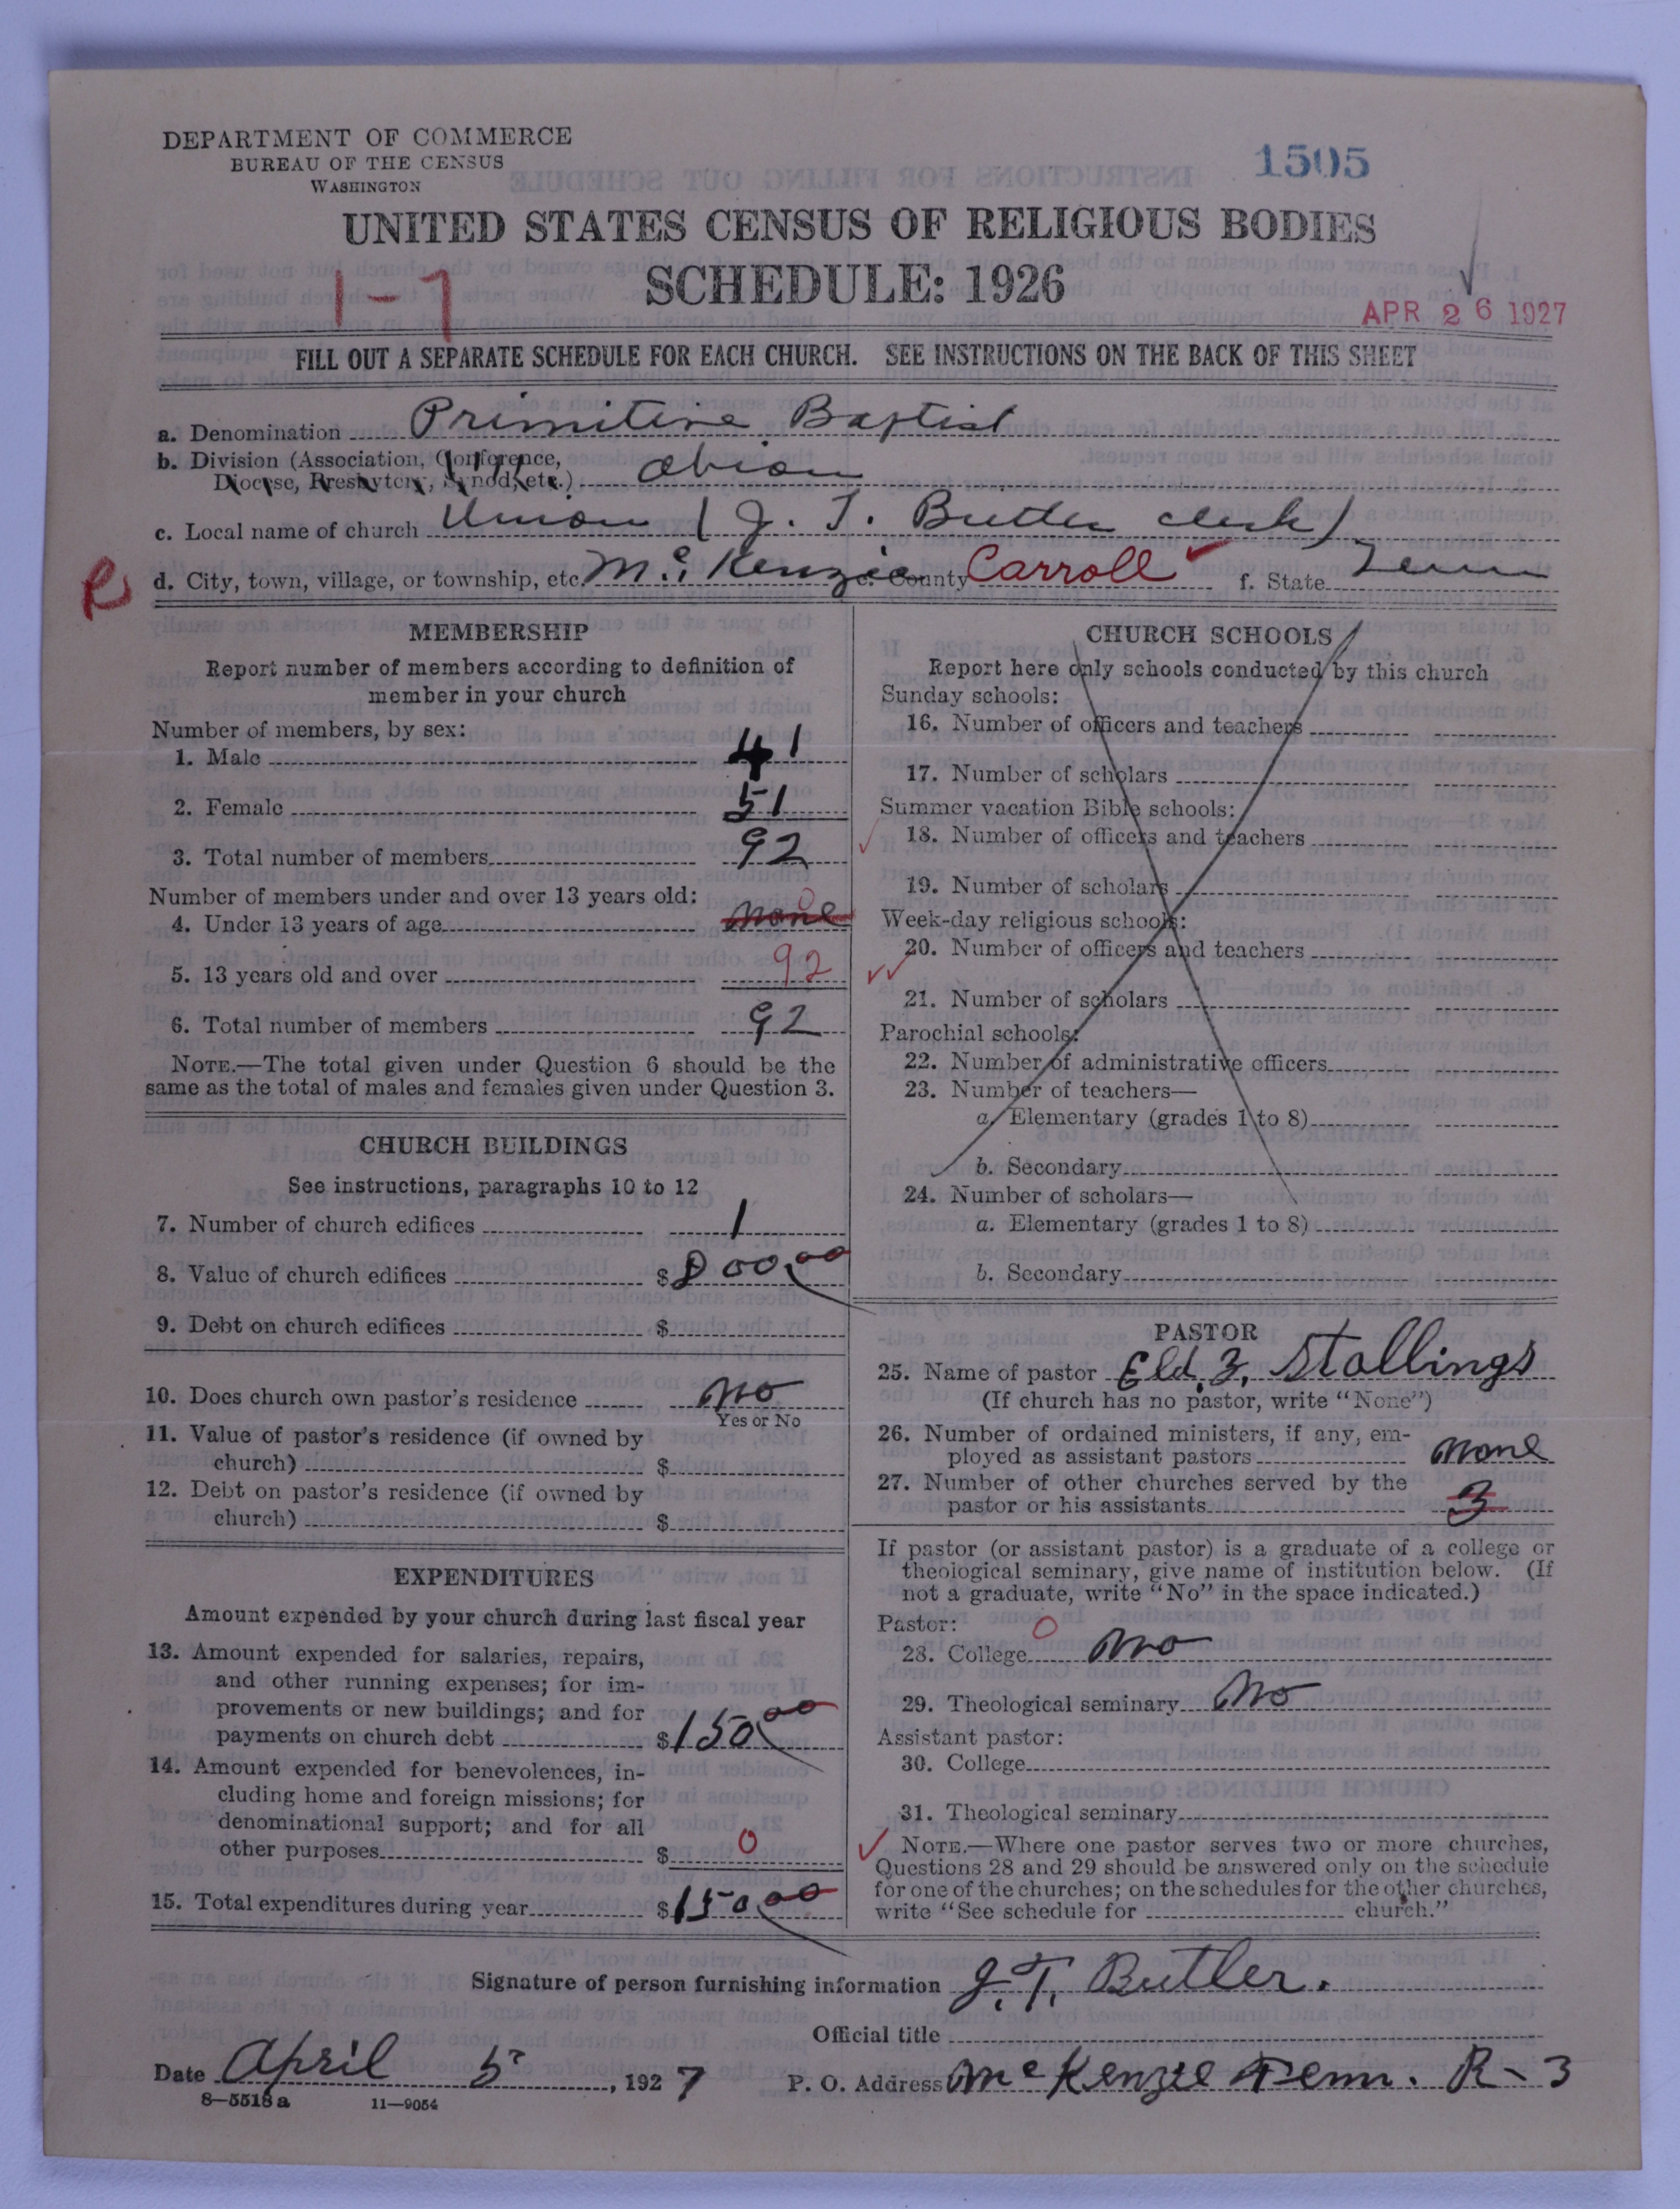 DEPARTMENT OF COMMERCE
BUREAU OF THE CENSUS
WASHINGTON
1505
UNITED STATES CENSUS OF RELIGIOUS BODIES
1-7
SCHEDULE: 1926
APR 26 1927
FILL OUT A SEPARATE SCHEDULE FOR EACH CHURCH. SEE INSTRUCTIONS ON THE BACK OF THIS SHEET
a. Denomination Primitive Baptist
b. Division (Association, Conference,
Diocese, Presbytery, Synod, etc.) Obion
c. Local name of church Union (J. T. Butler clerk)
R
d. City, town, village, or township, etc. McKenzie e. County Carroll f. State Tenn
MEMBERSHIP
Report number of members according to definition of
member in your church
Number of members, by sex:
1. Male 41
2. Female 51
3. Total number of members 92
Number of members under and over 13 years old:
4. Under 13 years of age none 0
5. 13 years old and over 92
6. Total number of members 92
NOTE.—The total given under Question 6 should be the
same as the total of males and females given under Question 3.
CHURCH BUILDINGS
See instructions, paragraphs 10 to 12
7. Number of church edifices 1
8. Value of church edifices $800.00
9. Debt on church edifices $
10. Does church own pastor's residence no
Yes or No
11. Value of pastor's residence (if owned by
church) $
12. Debt on pastor's residence (if owned by
church) $
EXPENDITURES
Amount expended by your church during last fiscal year
13. Amount expended for salaries, repairs,
and other running expenses; for im-
provements or new buildings; and for
payments on church debt $150.00
14. Amount expended for benevolences, in-
cluding home and foreign missions; for
denominational support; and for all
other purposes $ 0
15. Total expenditures during year $150.00
CHURCH SCHOOLS
Report here only schools conducted by this church
Sunday schools:
16. Number of officers and teachers
17. Number of scholars
Summer vacation Bible schools:
18. Number of officers and teachers
19. Number of scholars
Week-day religious schools:
20. Number of officers and teachers
21. Number of scholars
Parochial schools:
22. Number of administrative officers
23. Number of teachers—
a. Elementary (grades 1 to 8)
b. Secondary
24. Number of scholars—
a. Elementary (grades 1 to 8)
b. Secondary
PASTOR
25. Name of pastor Eld. Z. Stallings
(If church has no pastor, write "None")
26. Number of ordained ministers, if any, em-
ployed as assistant pastors none
27. Number of other churches served by the
pastor or his assistants 3
If pastor (or assistant pastor) is a graduate of a college or
theological seminary, give name of institution below. (If
not a graduate, write "No" in the space indicated.)
Pastor: 0
28. College no
29. Theological seminary no
Assistant pastor:
30. College
31. Theological seminary
NOTE.—Where one pastor serves two or more churches,
Questions 28 and 29 should be answered only on the schedule
for one of the churches; on the schedules for the other churches,
write "See schedule for church."
Signature of person furnishing information J. T. Butler.
Official title
Date April 5, 1927 P. O. Address McKenzie Tenn. R-3
8—5518a 11—9054